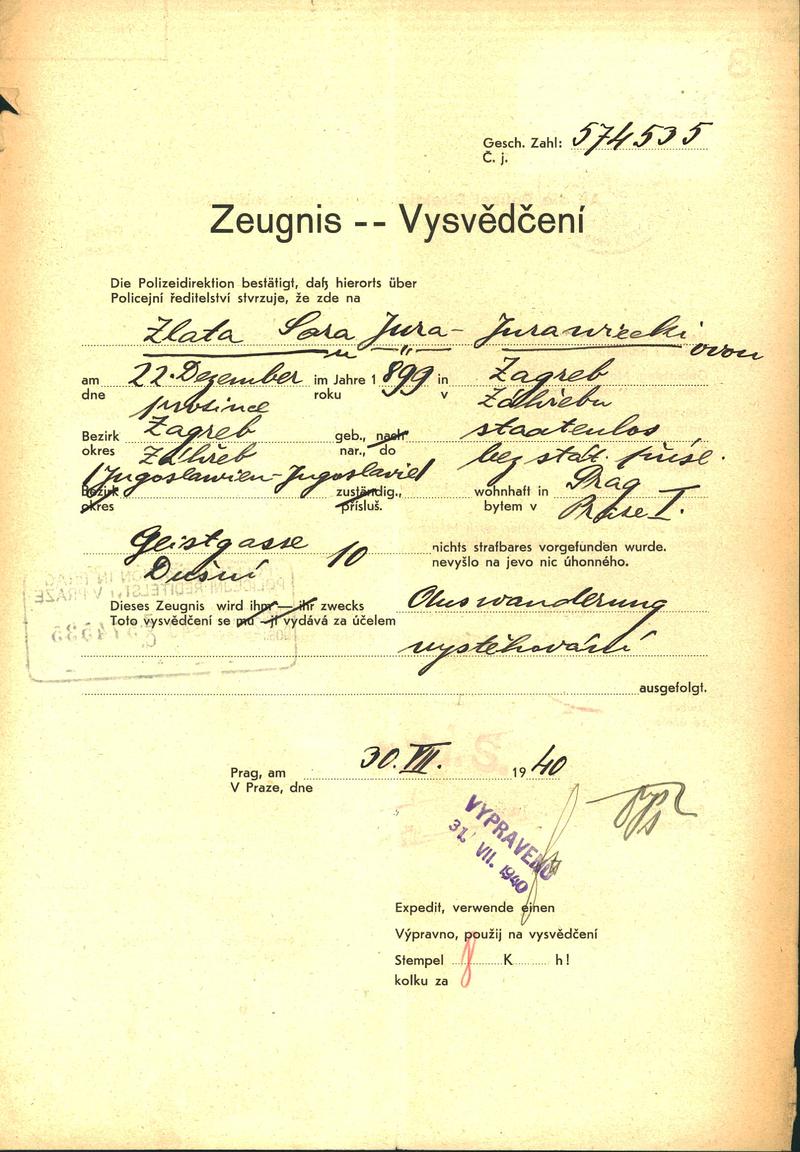 Gesch. Zahl: 574535
Č. j.
Zeugnis -- Vysvědčení
Die Polizeidirektion bestätigt, daß hierorts über
Policejní ředitelství stvrzuje, že zde na
Zlata Sara Jura- Jurawiecki
ovou
am 22. Dezember im Jahre 1899 in Zagreb
dne prosince roku v Záhřebu
Bezirk Zagreb geb., nach staatenlos
okres Záhřeb nar., do bez stát. přísl.
(Jugoslawien-Jugoslavie)
Bezirk zuständig., wohnhaft in Prag
okres přísluš. bytem v Praze I.
Geistgasse 10 nichts strafbares vorgefunden wurde.
Dušní nevyšlo na jevo nic úhonného.
Dieses Zeugnis wird ihm — ihr zwecks Auswanderung
Toto vysvědčení se mu — jí vydává za účelem
vystěhování
ausgefolgt.
Prag, am 30. VII. 1940
V Praze, dne
VYPRAVENO
31. VII. 1940
Expedit, verwende einen
Výpravno, použij na vysvědčení
Stempel 8 K h!
kolku za